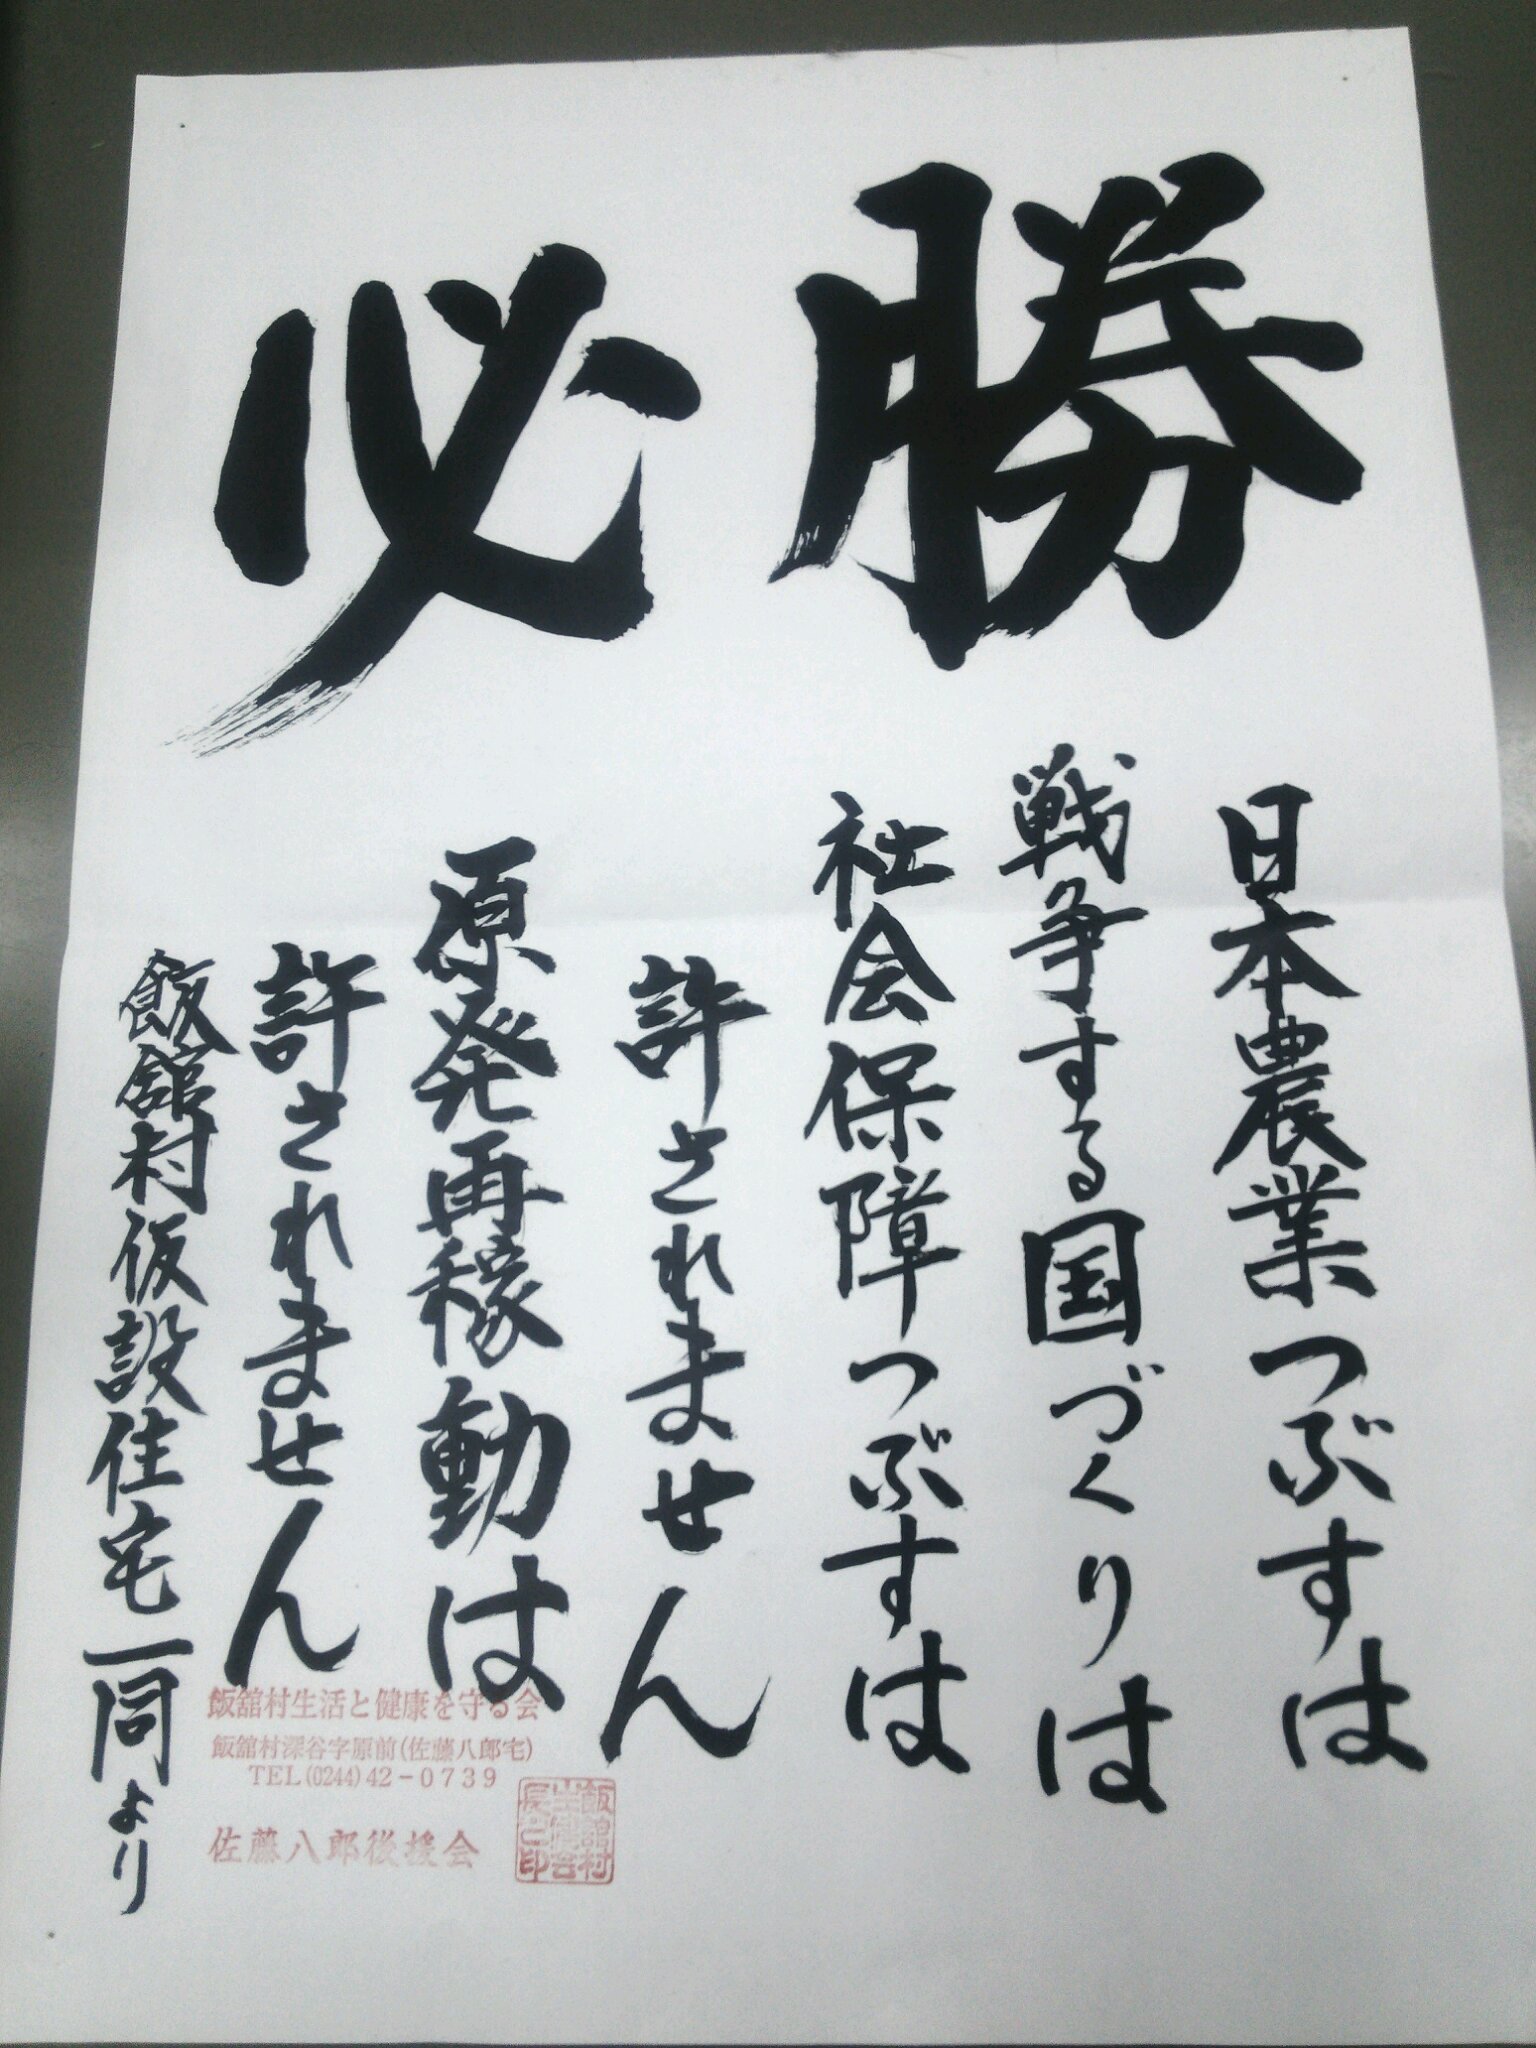 必勝
日本農業つぶすは
戦争する国づくりは
社会保障つぶすは
許されません
原発再稼動は
許されません
飯舘村仮設住宅一同より
飯舘村生活と健康を守る会
飯舘村深谷字原前(佐藤八郎宅)
TEL(0244)42-0739
佐藤八郎後援会